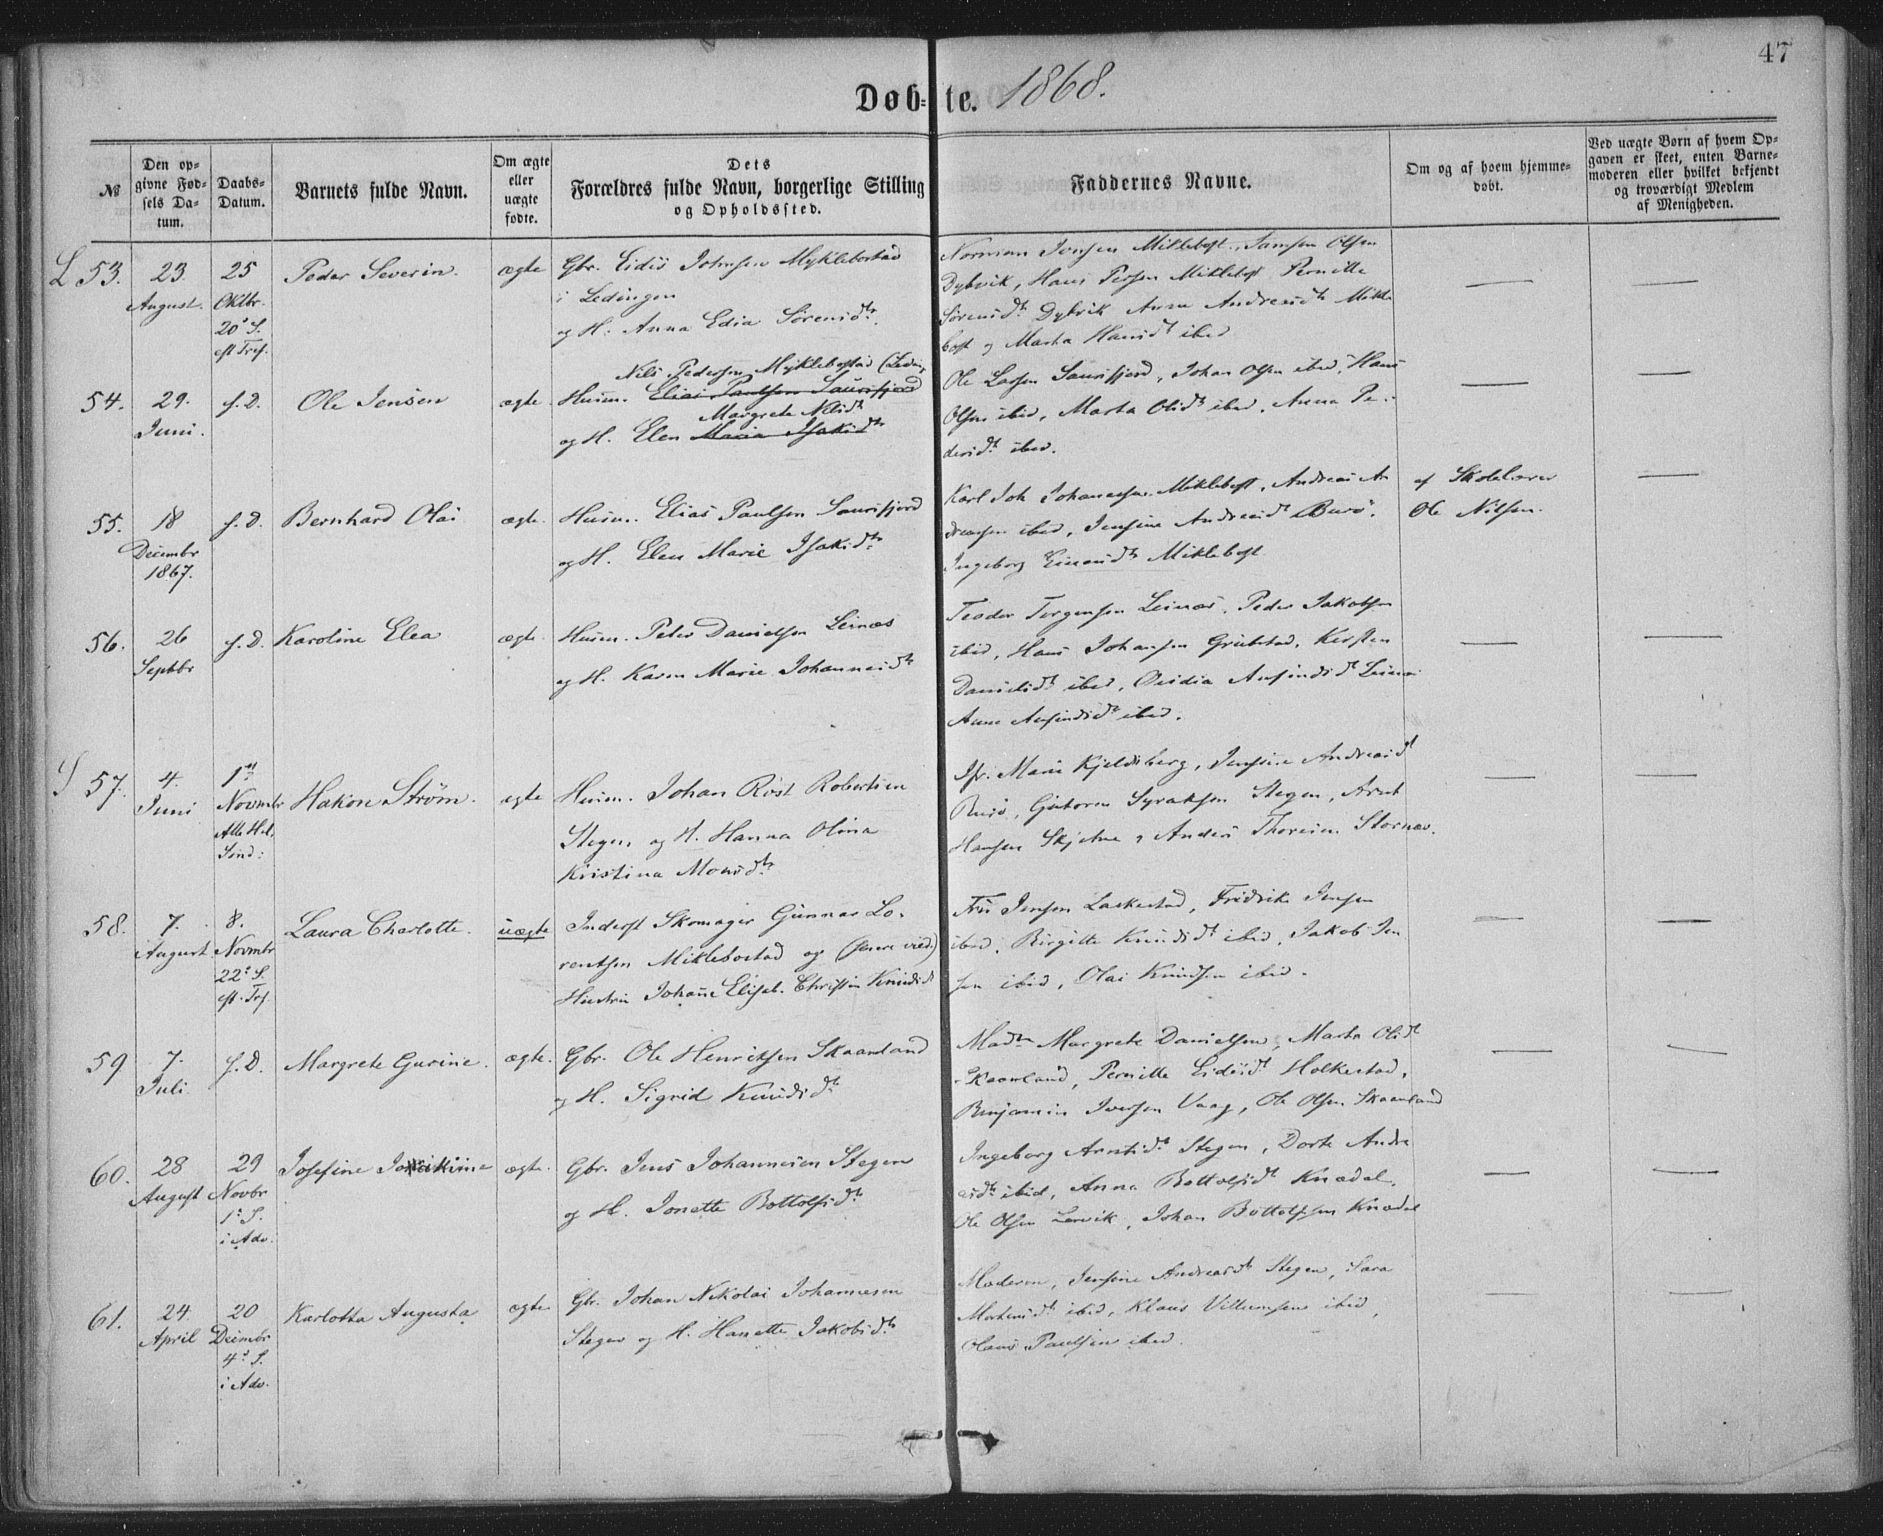 47
Døbte. 1868.
№
Den opgivne Fødsels Datum.
Daabs-Datum.
Barnets fulde Navn.
Om ægte eller uægte fødte.
Dets
Forældres fulde Navn, borgerlige Stilling
og Opholdssted.
Faddernes Navne.
Om og af hvem hjemmedøbt.
Ved uægte Børn af hvem Opgaven er skeet, enten Barnemoderen eller hvilket bekjendt og troværdigt Medlem af Menigheden.
L 53. 23 August. 25 Oktbr. 20' S. eft Tref.
Peder Severin. ægte
Gbr. Eidis Johnsen Myklebostad
i Ledingen
og H. Anna Edia Sørensdtr.
Norman Jonsen Miklebost, Samson Olsen
Dybvik, Hans Persen Miklebost Pernille
Sørensdtr Dybvik Anna Andreasdtr Mikle
bost og Marta Hansdt ibid
54. 29. Juni. s. D.
Ole Jensen ægte.
Nils Pedersen Myklebostad (Leding
Husm. Elias Paulsen Saursfjord
Margrete Nilsdtr
og H. Elen Maria Isaksdtr
Ole Larsen Saursfjord, Johan Olsen ibid, Hans
Olsen ibid, Marta Olsdtr ibid, Anna Pe-
dersdtr ibid.
55. 18 Decembr 1867. s. D.
Bernhard Olai ægte.
Husm. Elias Paulsen Saursfjord
og H. Elen Marie Isaksdtr
Karl Joh Johannesen Miklebost, Andreas An
dreasen ibid, Jensine Andreasdt Burø.
Ingeborg Einersdtr Miklebost
af Skolelærer
Ole Nilsen.
56. 26 Septbr s. D.
Karoline Elea ægte.
Husm. Peter Danielsen Leines
og H. Karen Marie Johannesdtr
Teodor Torgersen Leines, Peder Jakobsen
ibid, Hans Johansen Grubstad, Kersten
Danielsdtr ibid, Ovidia Anfindsdt Leines
Anne Anfindsdtr ibid.
S 57. 4. Juni 1ste Novmbr Alle Hel. Sønd:
Hakon Strøm. ægte
Husm. Johan Rost Robertsen
Stegen og H. Hanna Olina
Kristina Monsdtr
Jfr. Marie Kjeldsberg, Jensine Andreasdt
Burø, Gutorm Syraksen Stegen, Arnt
Hansen Skjelnes, Anders Thoresen Stornæs.
58. 7. August 8. Novmbr 22' S. eft. Tref.
Laura Charlotte. uægte
Inderst Skomager Gunnar Lo-
rentsen Miklebostad og (senere viede)
Hustru Johanne Elisab. Christin Knudsdt
Fru Jensen Laskestad, Fredrik Jensen
ibid, Birgitte Knudsdt ibid, Jakob Jen
sen ibid, Olai Knudsen ibid.
59 7. Juli s. D.
Margrete Gurine. ægte.
Gbr. Ole Henriksen Skaanland
og H. Sigrid Knudsdtr
Madm Margrete Danielsen, Marta Olsdt
Skaanland, Pernille Eidisdt Holkestad,
Benjamin Iversen Vaag, Ole Olsen Skaanland
60. 28 August 29 Novbr 1' S. i Adv.
Josefine Joakimine ægte.
Gbr. Jens Johannesen Stegen
og H. Jonette Bottolfsdtr
Ingeborg Arntsdtr Stegen, Dorte Andre
asdtr ibid, Anna Bottolfsdt Knædal,
Ole Olsen Lervik, Johan Bottolfsen Knædal
61. 24 April 20 Decimbr 4' S. i Adv.
Karlotta Augusta ægte
Gbr. Johan Nikolai Johannesen
Stegen og H. Hanette Jakobsdtr
Moderen, Jensine Andreasdtr Stegen, Sara
Mortensdt ibid, Klaus Villumsen ibid,
Olaus Paulsen ibid.